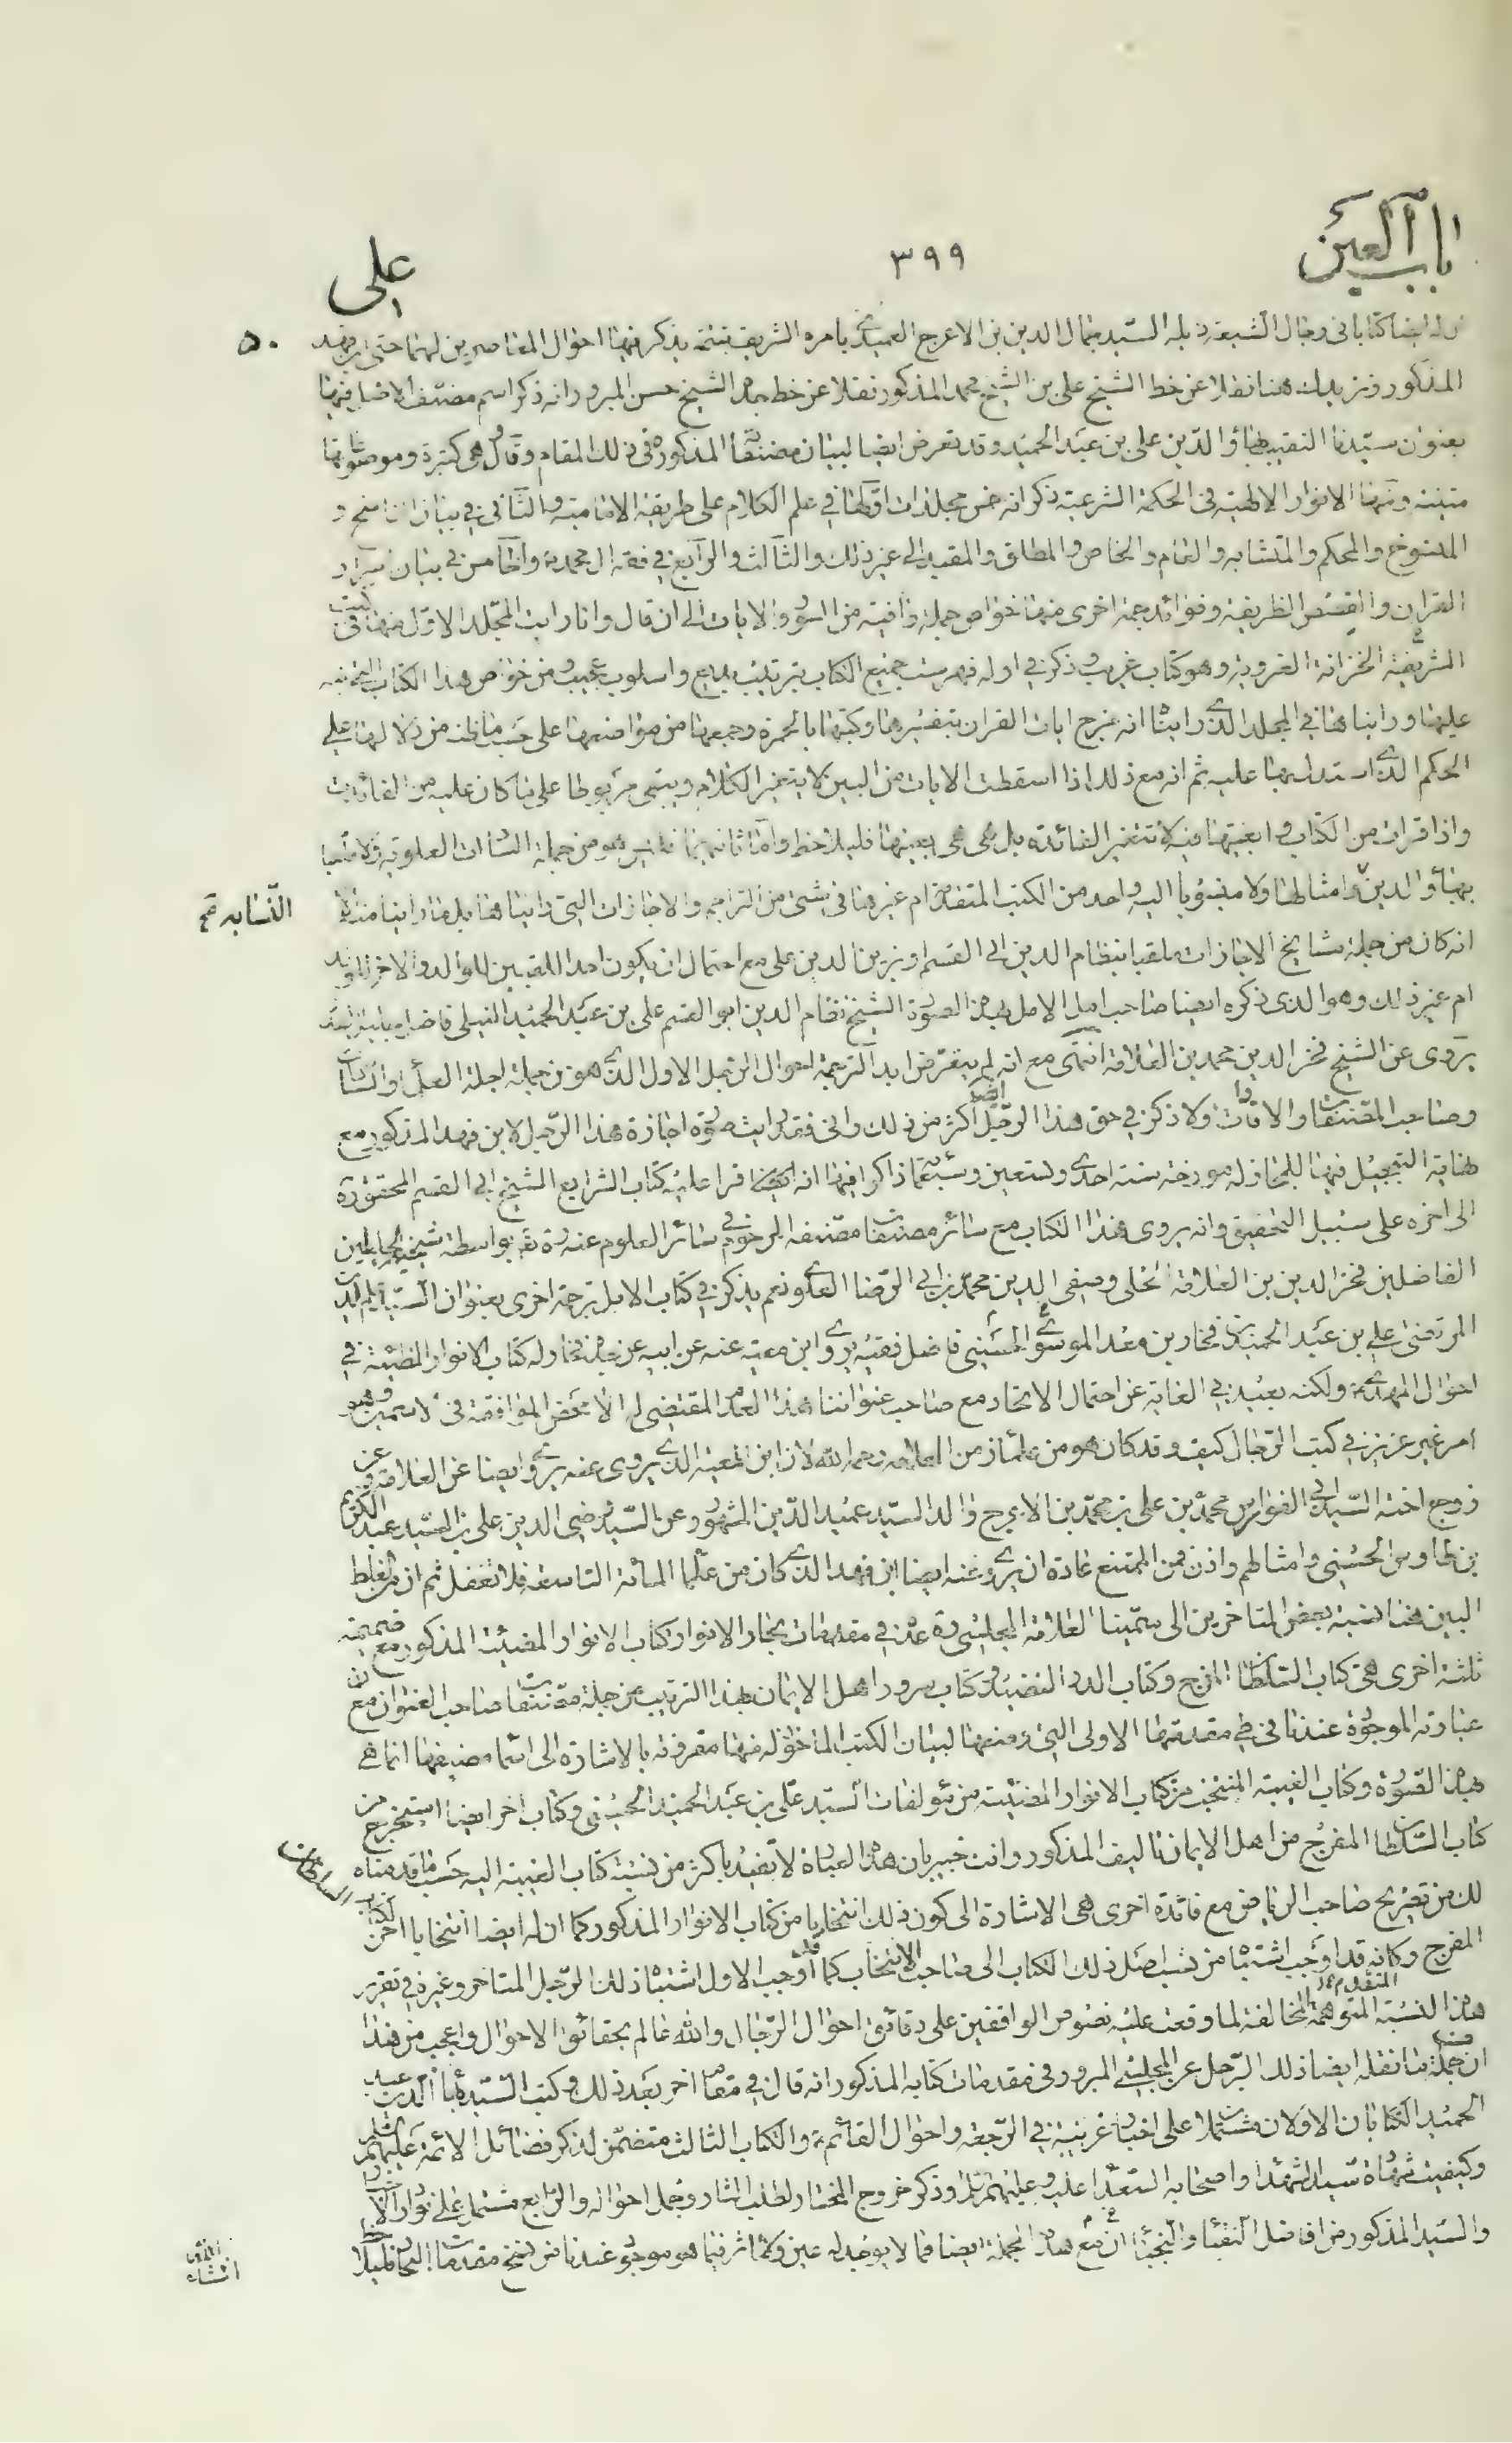 باب العين
٣٩٩
على
ان له ايضا كتابا فى رجال الشيعة ذيله السيد جمال الدين بن الاعرج العميدى بامره الشريف بتتمة يذكر فيها احوال المعاصرين لهما حتى ابن فهد
المذكور ونزيدك هنا نقلا عن خط الشيخ على بن الشيخ محمد المذكور نقلا عن خط جده الشيخ حسن المبرور انه ذكر اسم مصنف الاصل فيها
بعنوان سيدنا النقيب بهاء الدين على بن عبد الحميد وقد تعرض ايضا لبيان مصنفاته المذكورة فى ذلك المقام وقال هى كثيرة وموضوعاتها
متينة ومنها الانوار الالهية فى الحكمة الشرعية ذكر انه خمس مجلدات اولها فى علم الكلام على طريقة الامامية والثانى فى بيان الناسخ و
المنسوخ والمحكم والمتشابه والعام والخاص والمطلق والمقيد الى غير ذلك والثالث والرابع فى فقه ال محمد والخامس فى بيان اسرار
القران والقصص الظريفة وفوائد جمة اخرى منها خواص جملة وافية من السور والايات الى ان قال وانا رايت المجلد الاول منها فى كتب
الشريفة الخزانة الغروية وهو كتاب غريب وذكر فى اوله فهرست جميع الكتاب بترتيب بديع واسلوب عجيب ومن خواص هذا الكتاب
عليها ورايناها فى المجلد الذى رايناه انه يخرج ايات القران بتفسيرها وكتبها بالحمرة وجمعها من مواضعها على حسب ما ظنه من دلالتها على
الحكم الذى استدل بها عليه ثم انه مع ذلك اذا اسقطت الايات من البين لا يتغير الكلام ويبقى مربوطا على ما كان عليه من الفائدة
واذا قرات من الكتاب وابقيتها فيه لا تتغير الفائدة بل هى هى بعينها فليلاحظ واما ثانيهما فليس هو من جملة السادات العلوية ولا ملقبا
بهاء الدين وامثالها ولا منسوبا اليه واحد من الكتب المتقدمة ام غيرها فى شىء من التراجم والاجازات التى رايناها بل ما راينا منه
النسابه ثم
انه كان من جملة مشايخ الاجازات ملقبا بنظام الدين ابى القسم او زين الدين على مع احتمال ان يكون احد اللقبين للوالد والاخر للولد
ام غير ذلك وهو الذى ذكره ايضا صاحب امل الامل بهذه الصورة الشيخ نظام الدين ابو القسم على بن عبد الحميد النيلى فاضل جليل
يروى عن الشيخ فخر الدين محمد بن العلامة انتهى مع انه لم يتعرض ابدا لترجمة احوال الرجل الاول الذى هو من جملة اجلة العلماء والسادات
وصاحب المصنفات والافادات ولا ذكر فى حق هذا الرجل ايضا اكثر من ذلك وانى فقد رايت صورة اجازة هذا الرجل لابن فهد المذكور مع
نهاية التبجيل فيها للمجاز له مورخة سنة احدى وتسعين وسبعمائة ذاكرا فيها انه ايضا قرا عليه كتاب الشرايع للشيخ ابى القسم المحقق ره
الى اخره على سبيل التحقيق وانه يروى هذا الكتاب مع سائر مصنفات مصنفه المرحوم فى سائر العلوم عنه ره بواسطة شيخيه الجليلين
الفاضلين فخر الدين بن العلامة الحلى وصفى الدين محمد بن ابى الرضا العلوى نعم يذكر فى كتاب الامل ترجمة اخرى بعنوان السيد علم الدين
المرتضى على بن عبد الحميد بن فخار بن معد الموسوى الحسينى فاضل فقيه يروى ابن معية عنه عن ابيه عن جده فخار له كتاب الانوار المضيئة فى
احوال المهدى ولكنه بعيد فى الغاية عن احتمال الاتحاد مع صاحب عنواننا هذا لعدم المقتضى له الا محض الموافقة فى الاسمين وهو
امر غير عزيز فى كتب الرجال كيف وقد كان هو من علماء زمن العلامه رحمه الله لان ابن المعية الذى يروى عنه يروى ايضا عن العلامة وعن
زوج اخته السيد ابى الفوارس محمد بن على بن محمد بن الاعرج والد السيد عميد الدين المشهور وعن السيد رضى الدين على بن السيد عبد الكريم
بن طاوس الحسينى وامثالهم واذن فمن الممتنع عادة ان يروى عنه ايضا ابن فهد الذى كان من علماء المائة التاسعة فلا تغفل ثم ان من الغلط
البين هنا نسبة بعض المتاخرين الى سمينا العلامة المجلسى ره عده فى مقدمات بحار الانوار كتاب الانوار المضيئة المذكور مع ضميمة
ثلثة اخرى هى كتاب السلطان المفرج وكتاب الدر النضيد وكتاب سرور اهل الايمان بهذا الترتيب من جملة مصنفات صاحب العنوان مع ان
عبارته الموجودة عندنا فى طى مقدمتها الاولى التى وضعها لبيان الكتب الماخوذ منها مقرونة بالاشارة الى اسماء مصنفيها انما هى
بهذه الصورة وكتاب الغيبة المنتخب من كتاب الانوار المضيئة من مؤلفات السيد على بن عبد الحميد الحسينى وكتاب اخر ايضا استخرج من
كتاب السلطان المفرج من اهل الايمان تاليف المذكور وانت خبير بان هذه العبارة لا تفيد باكثر من نسبة كتاب الغيبة اليه حسب ما قدمناه
لك من تصريح صاحب الرياض مع فائدة اخرى هى الاشارة الى كون ذلك انتخابا من كتاب الانوار المذكور كما ان له ايضا انتخابا اخر من كتاب السلطان
المفرج وكانه قد اوجب اشتباها من نسب اصل ذلك الكتاب الى صاحب الانتخاب كما قد اوجب الاول اشتباه ذلك الرجل المتاخر وغيره فى تقرير
هذه النسبة المتوهمة المتقدمة المخالفة لما وقعت عليه نصوص الواقفين على دقائق احوال الرجال والله عالم بحقائق الاحوال واعجب من هذا
ان جملة ما نقله ايضا ذلك الرجل عن المجلسى المبرور فى مقدمات كتابه المذكور انه قال فى مقام اخر بعد ذلك وكتب السيد بهاء الدين عبد
الحميد الكتابان الاولان مشتملان على اخبار غريبة فى الرجعة واحوال القائم والكتاب الثالث متضمن لذكر فضائل الائمة عليهم السلم
وكيفية شهادة سيد الشهداء واصحابه السعداء عليه وعليهم السلام وذكر خروج المختار لطلب الثار وجمل احواله والرابع مشتمل على نوادر الاخبار
والسيد المذكور من افاضل النقباء والنجباء انتهى مع ان هذه الجملة ايضا مما لا يوجد له عين ولا اثر فيما هو موجود عندنا من نسخ مقدمات البحار فليلاحظ